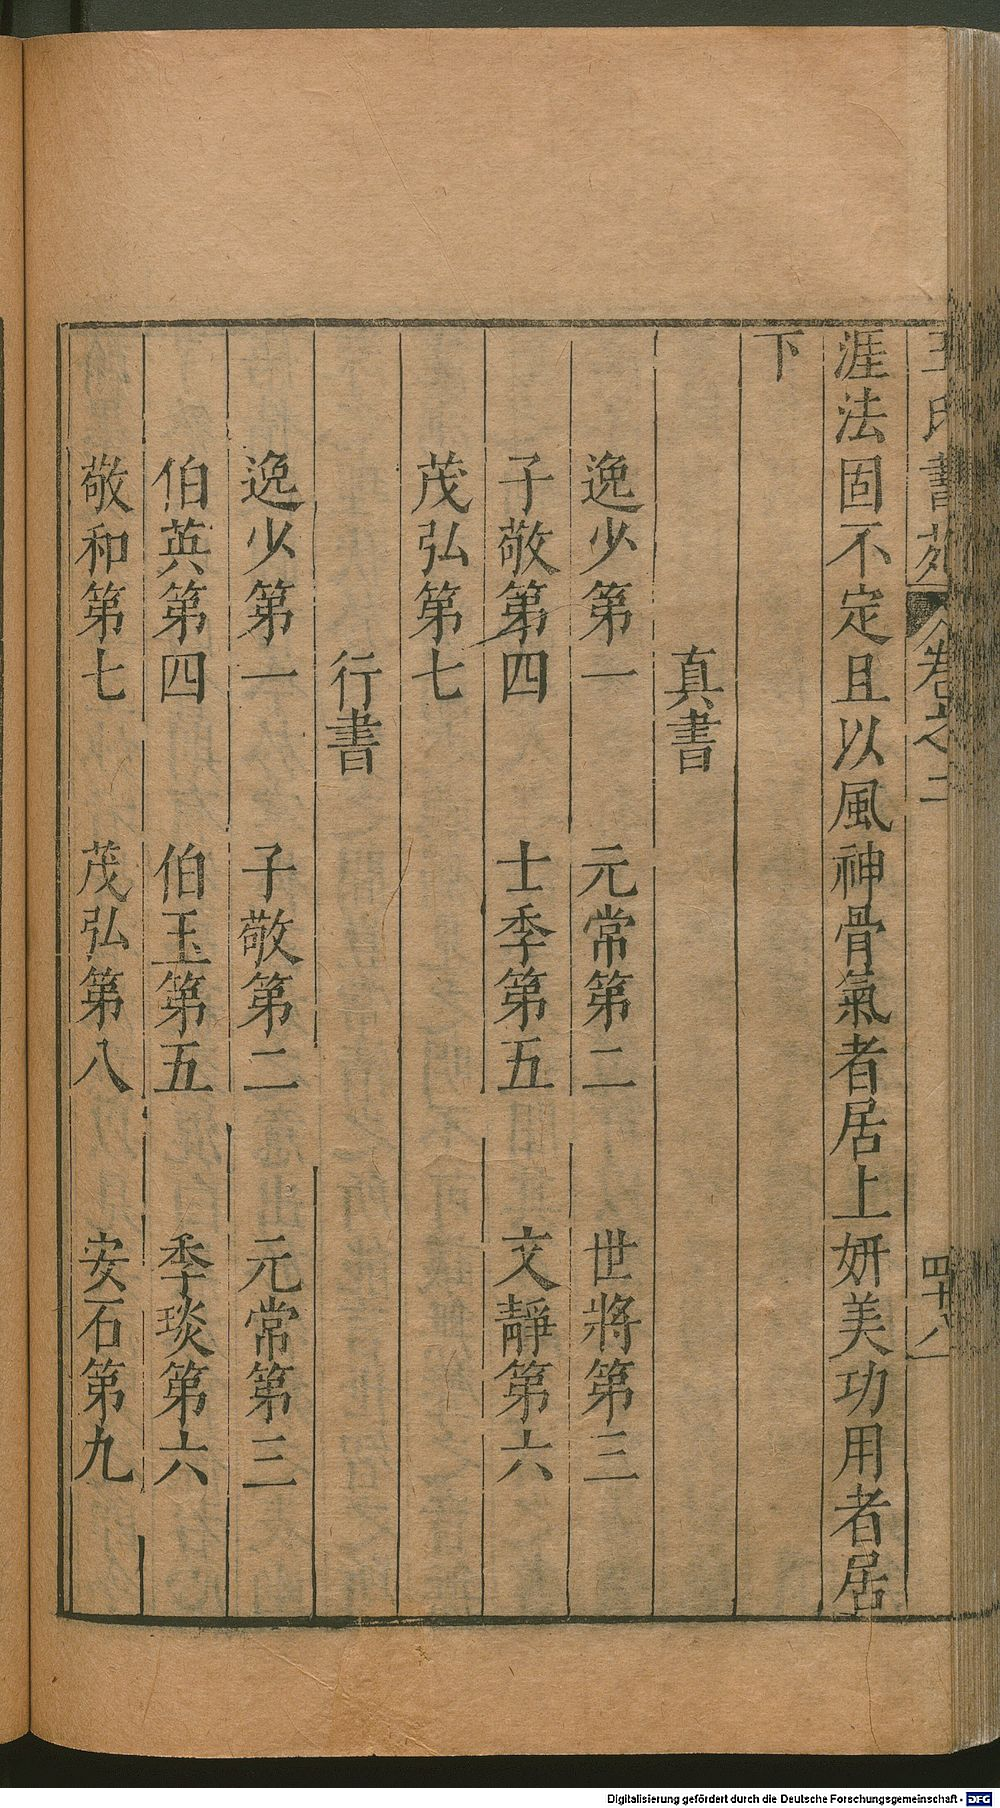 王氏書苑 卷之二 四十八
涯法固不定且以風神骨氣者居上妍美功用者居
下
真書
逸少第一 元常第二 世將第三
子敬第四 士季第五 文靜第六
茂弘第七
行書
逸少第一 子敬第二 元常第三
伯英第四 伯玉第五 季琰第六
敬和第七 茂弘第八 安石第九
Digitalisierung gefördert durch die Deutsche Forschungsgemeinschaft - DFG